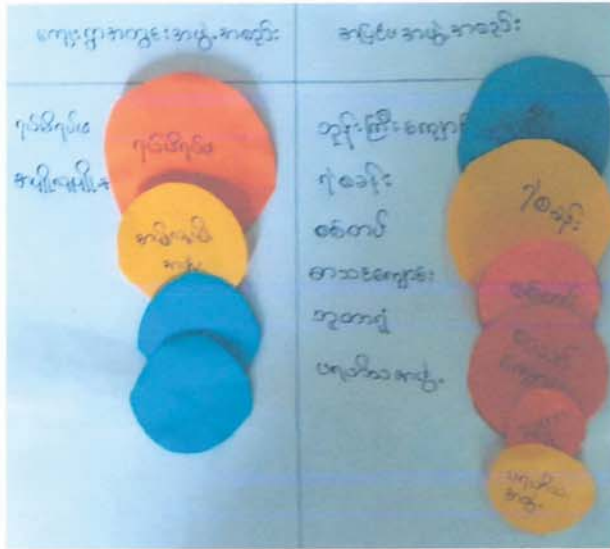 ကျေးရွာအတွင်းအဖွဲ့အစည်း
အပြင်ဖအဖွဲ့အစည်း
ရပ်မိရပ်ဖ
ရပ်မိရပ်ဖ
ဘုန်းကြီးကျောင်း
ရဲစခန်း
ရဲစခန်း
စစ်တပ်
စစ်တပ်
စာသင်ကျောင်း
စာသင်ကျောင်း
ဘူတာရုံ
ပရဟိတအဖွဲ့
ပရဟိတအဖွဲ့